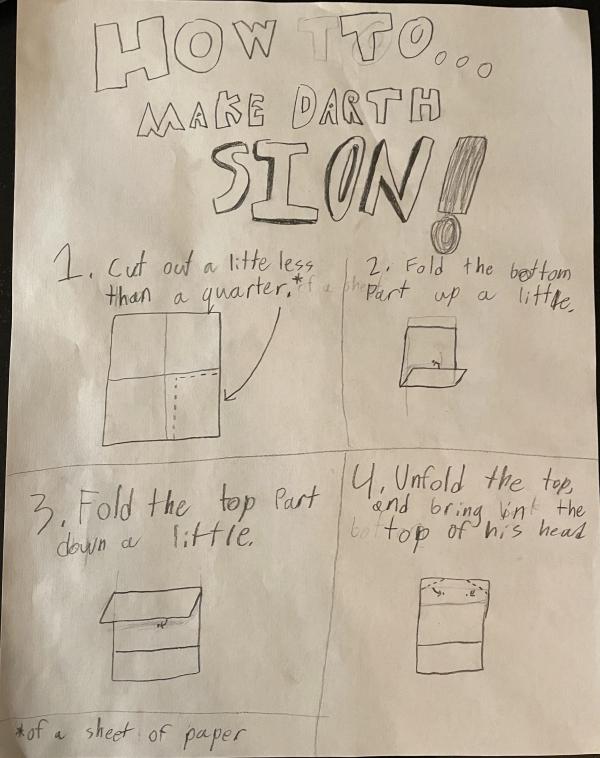 HOW TO...
MAKE DARTH
SION!
1. Cut out a litte less
than a quarter.*
2. Fold the bottom
part up a little.
3. Fold the top Part
down a little.
4. Unfold the top,
and bring in the
top of his head
*of a sheet of paper